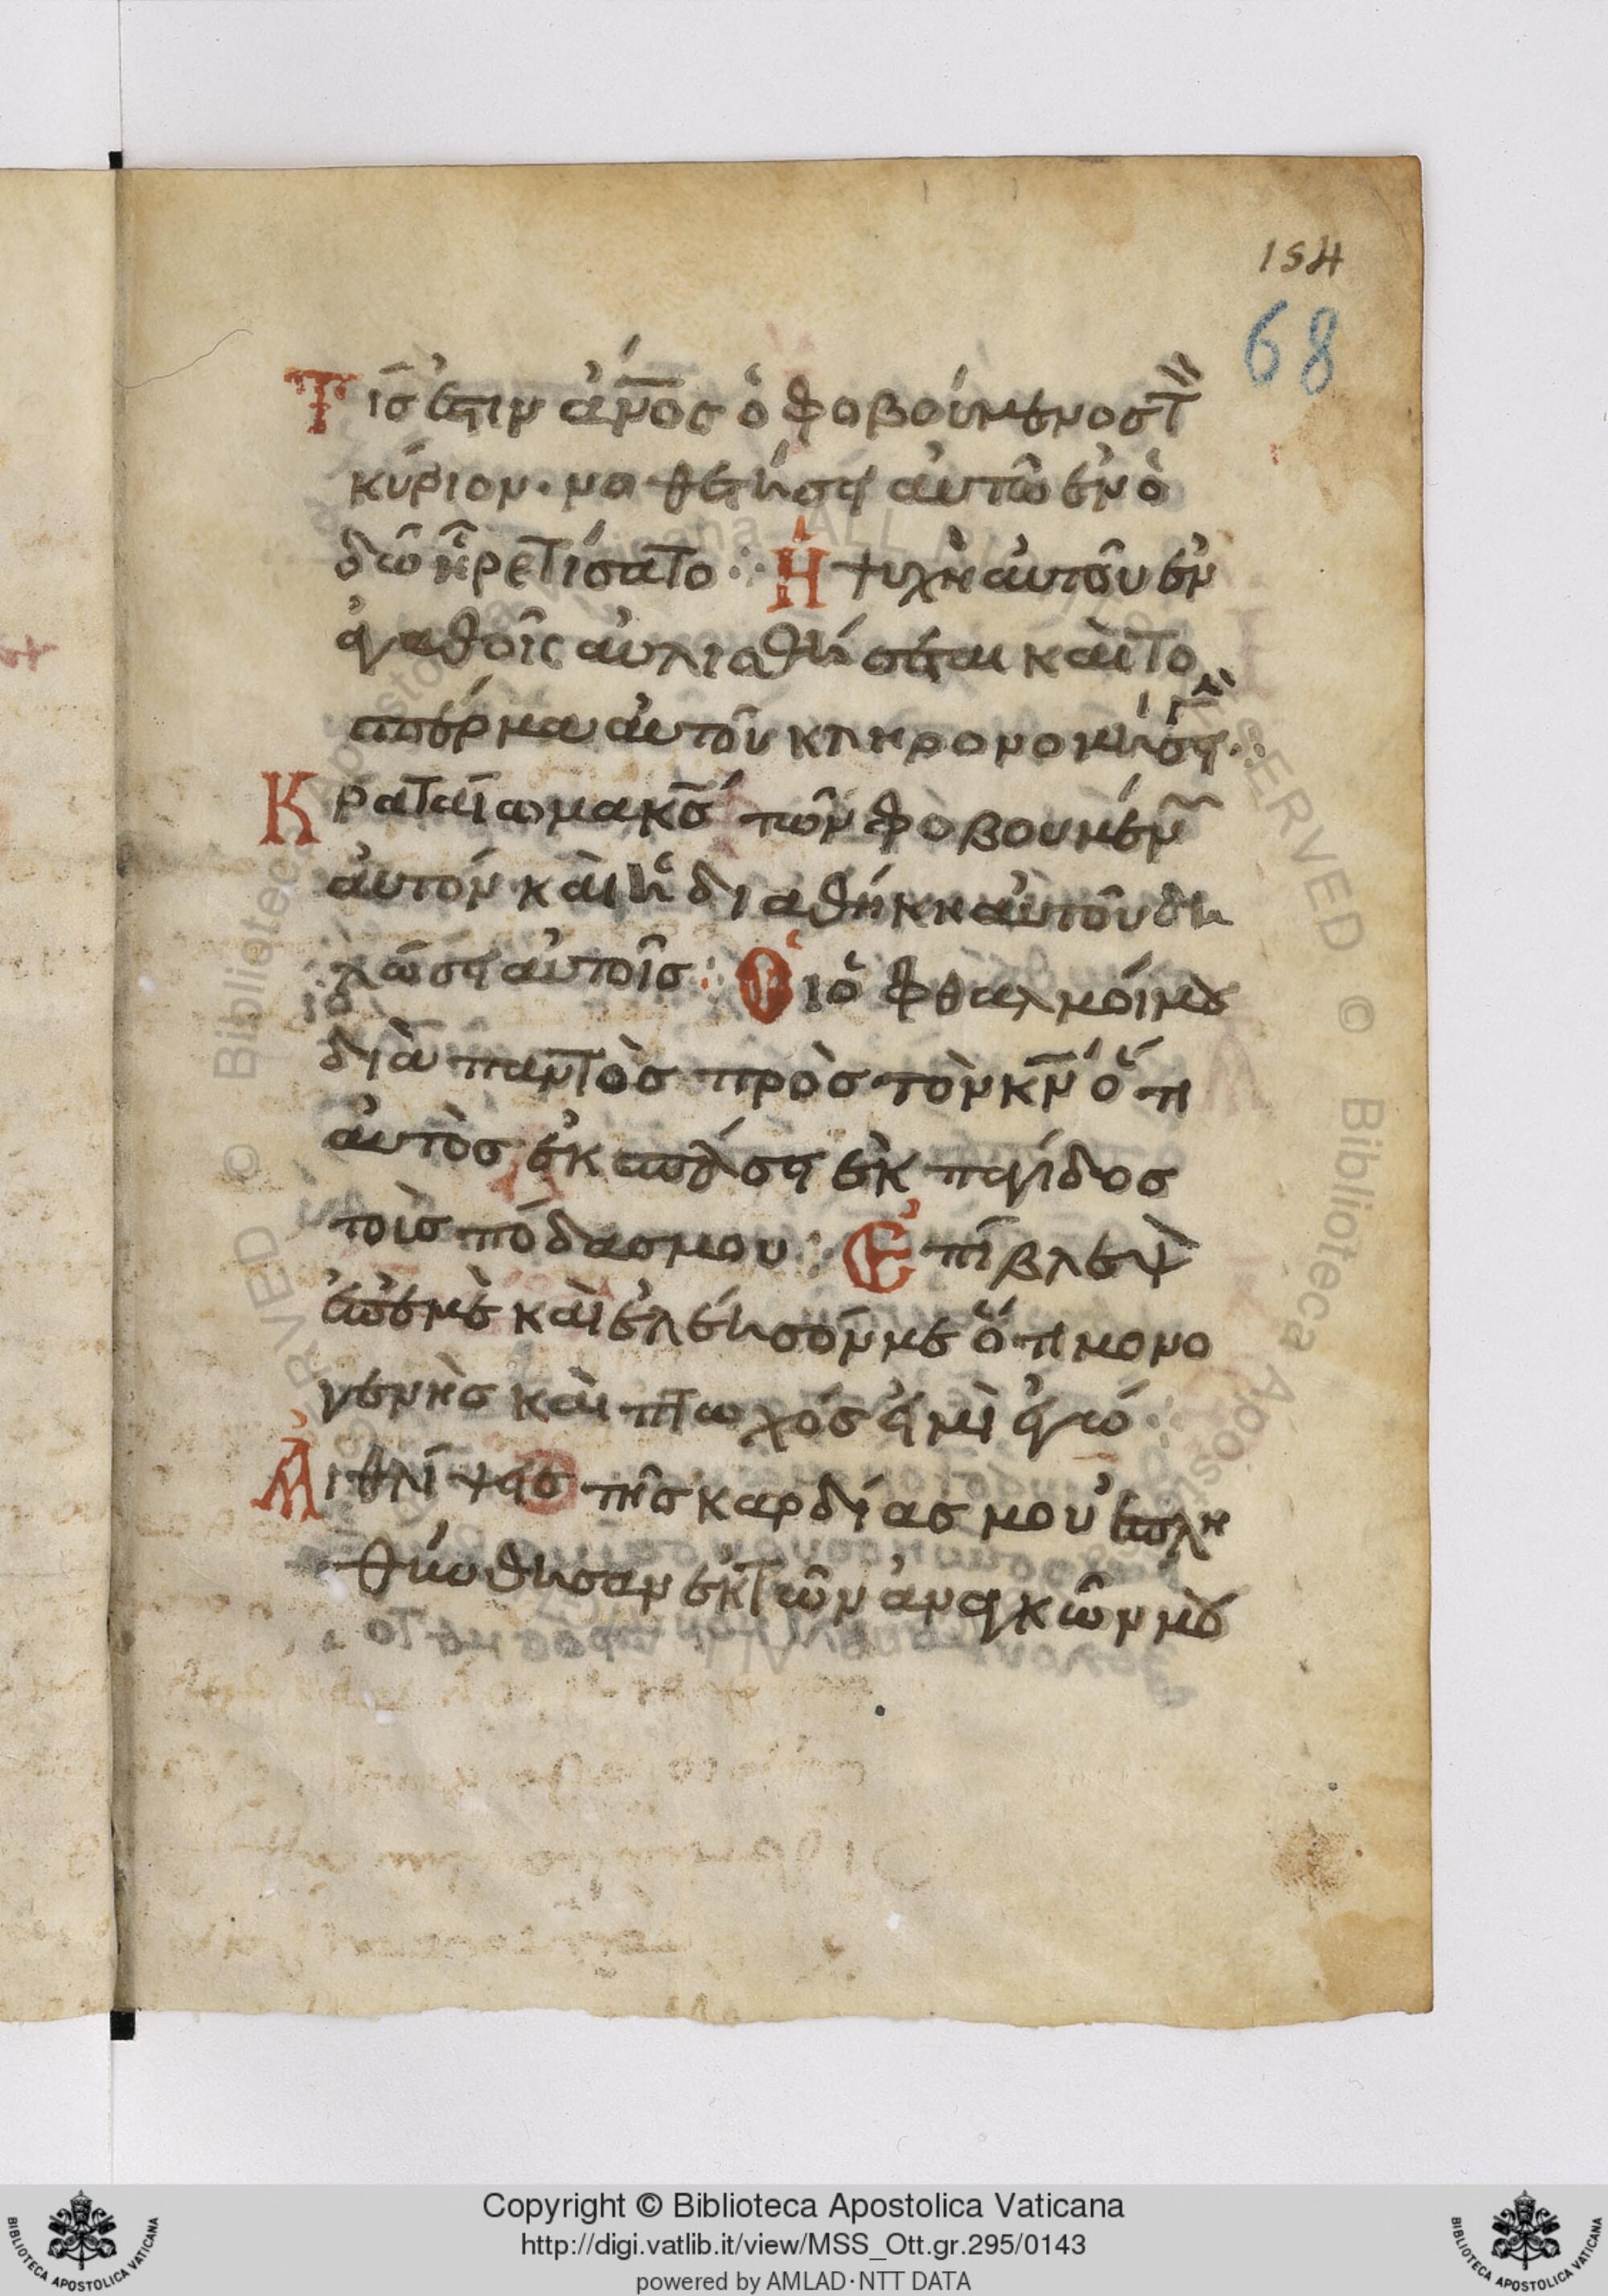 154
68
Τίς ἐστιν ἄν̅ο̅ς ὁ φοβούμενος τ̏
κύριον. νο θετήσει αὐτῶ ἐν ὁ
δῶ ἧ ρετίσατο : Ἡ ψυχὴ αὐτοῦ ἐν
ἀγαθοῖς αὐλισθήσεται καὶ το
σπέρμα αὐτοῦ κληρονομήσει γῆν :
Κραταίωμα κ̅ς̅ τῶν φοβουμέν
αὐτόν καὶ ἡ διαθήκη αὐτοῦ δη
λώσει αὐτοῖς : Οἱ ὀφθαλμοί μου
διὰ παντὸς πρὸς τὸν κ̅ν̅ ὅτι
αὐτὸς ἐκσπάσει ἐκ παγίδος
τοὺς πόδας μου : Ἐπίβλεψ
ἐπ' ἐμὲ καὶ ἐλέησόν με ὅτι μονο
γενὴς καὶ πτωχός εἰμὶ ἐγώ :
Αἱ θλίψεις τῆς καρδίας μου ἐπλη
θύνθησαν ἐκ τῶν ἀναγκῶν μου
Copyright © Biblioteca Apostolica Vaticana
http://digi.vatlib.it/view/MSS_Ott.gr.295/0143
powered by AMLAD·NTT DATA
BIBLIOTECA APOSTOLICA VATICANA
BIBLIOTECA APOSTOLICA VATICANA